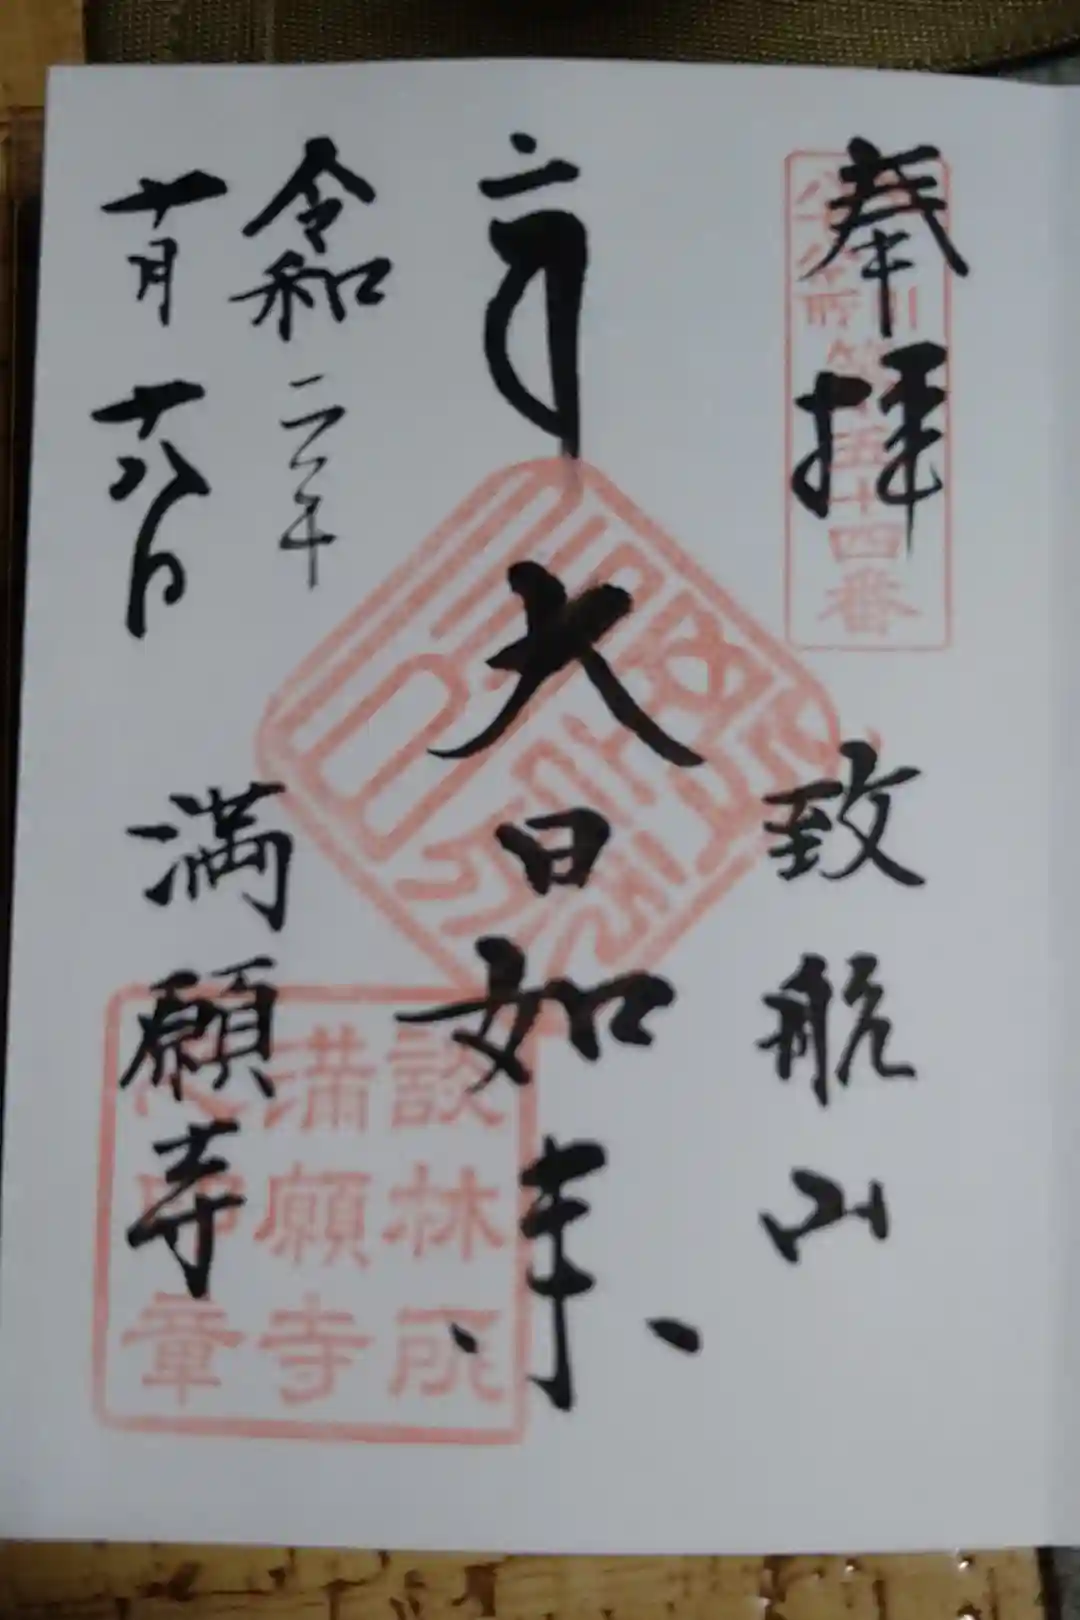 奉拝
五十四番
致航山
大日如来
令和二年
十月十八日
満願寺
談林所
満願寺
章